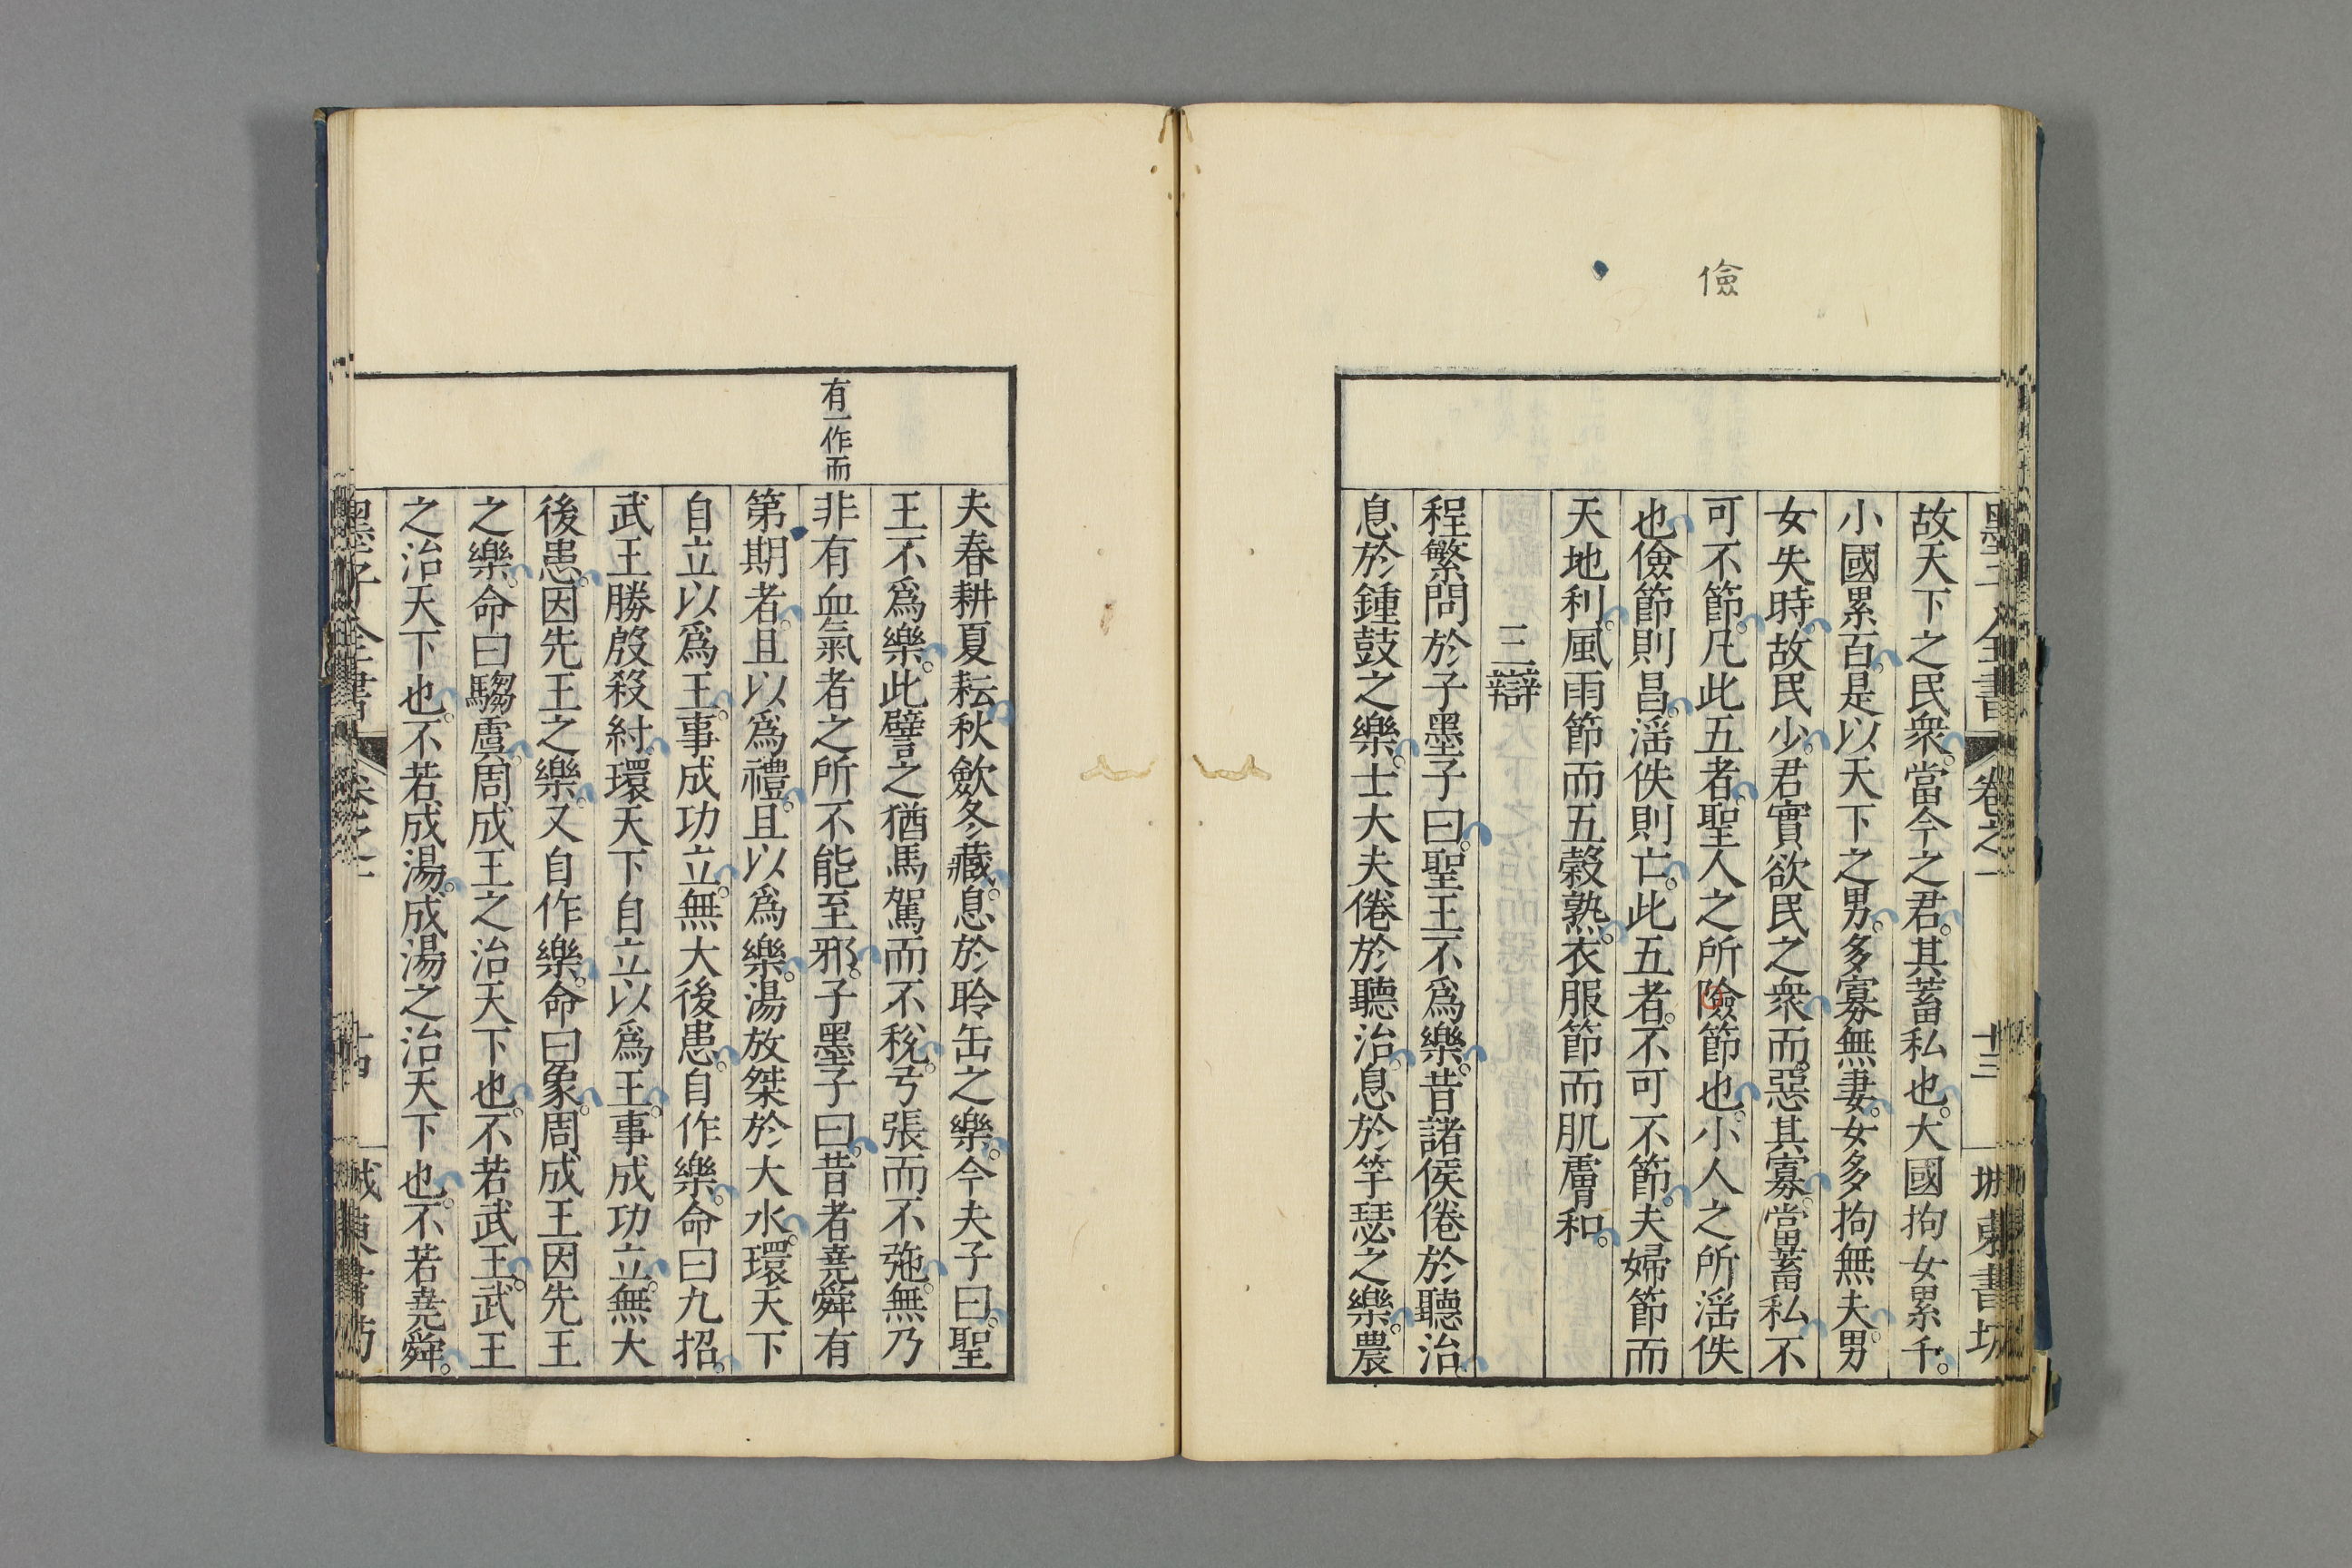 儉
墨子全書 卷之一 十三 城東書坊
故天下之民衆。當今之君。其蓄私也。大國拘女累千。
小國累百。是以天下之男。多寡無妻。女多拘無夫。男
女失時。故民少。君實欲民之衆。而惡其寡。當蓄私不
可不節。凡此五者。聖人之所險節也。小人之所淫佚
也。儉節則昌。淫佚則亡。此五者。不可不節。夫婦節而
天地利。風雨節而五穀熟。衣服節而肌膚和。
三辯
程繁問於子墨子曰。聖王不爲樂。昔諸侯倦於聽治。
息於鍾鼓之樂。士大夫倦於聽治。息於竽瑟之樂。農
夫春耕夏耘。秋斂冬藏。息於聆缶之樂。今夫子曰。聖
王不爲樂。此譬之猶馬駕而不稅。弓張而不弛。無乃
有一作而
非有血氣者之所不能至邪。子墨子曰。昔者堯舜有
第期者。且以爲禮。且以爲樂。湯放桀於大水。環天下
自立以爲王。事成功立。無大後患。自作樂。命曰九招。
武王勝殷殺紂。環天下自立以爲王。事成功立。無大
後患。因先王之樂。又自作樂。命曰象。周成王因先王
之樂。命曰騶虞。周成王之治天下也。不若武王。武王
之治天下也。不若成湯。成湯之治天下也。不若堯舜。
墨子全書 卷之一 十四 城東書坊